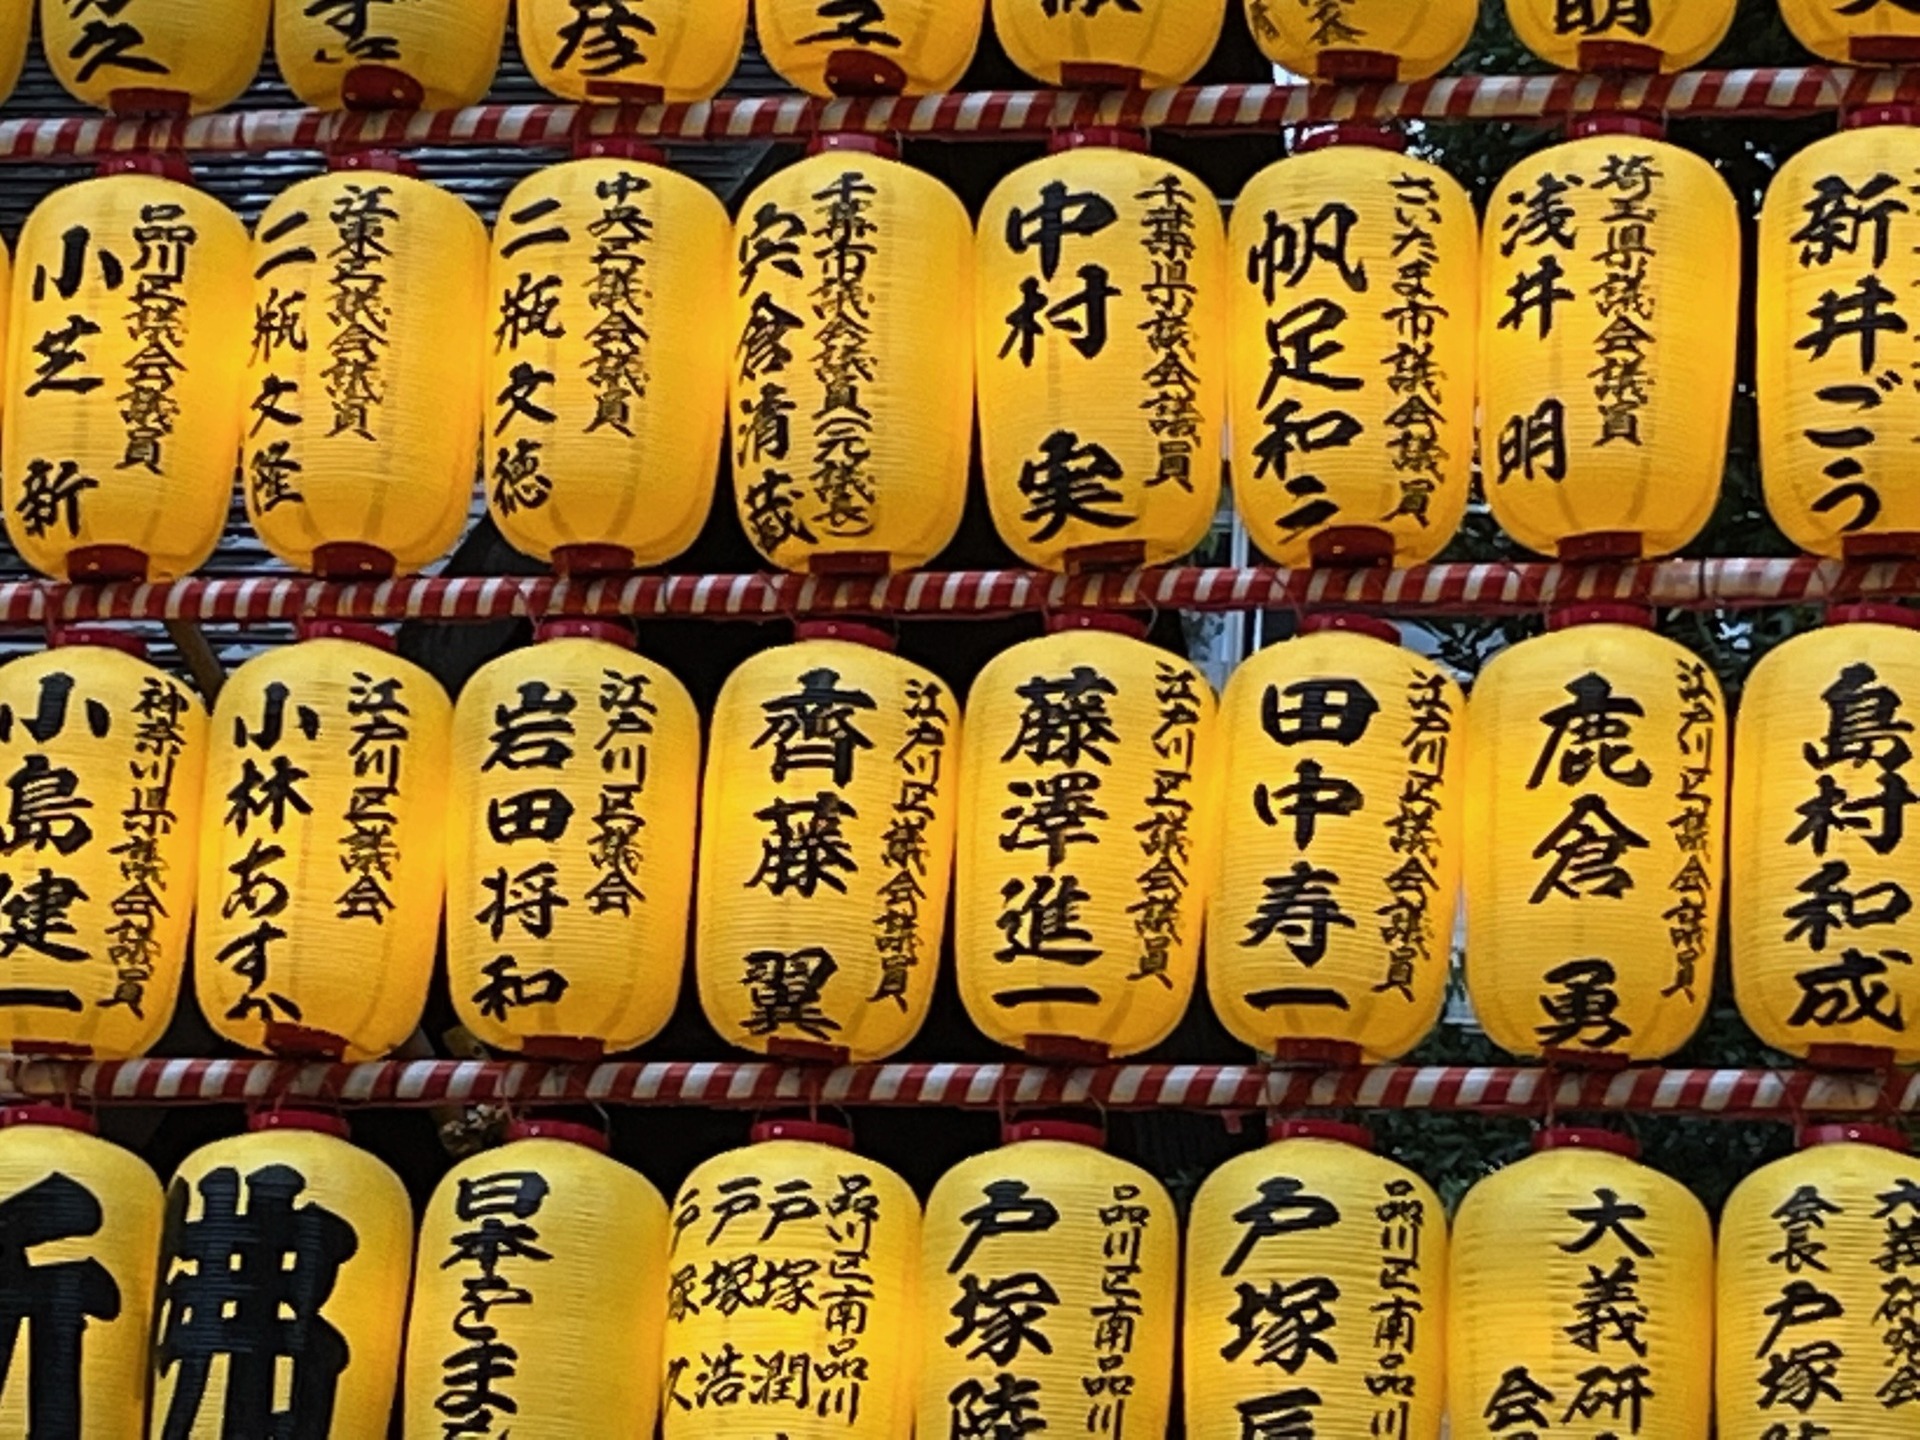 品川区議会議員
小芝新
江東区議会議員
二瓶文隆
中央区議会議員
二瓶文徳
千葉市議会議員(元議長)
宍倉清蔵
千葉県議会議員
中村実
さいたま市議会議員
帆足和之
埼玉県議会議員
浅井明
新井ごう
神奈川県議会議員
小島健一
江戸川区議会
小林あすか
江戸川区議会
岩田将和
江戸川区議会議員
齊藤翼
江戸川区議会議員
藤澤進一
江戸川区議会議員
田中寿一
江戸川区議会議員
鹿倉勇
島村和成
日本をまも
品川区南品川
戸塚潤
戸塚浩
品川区南品川
戸塚陸
品川区南品川
戸塚辰
大義研
会
大義研究会
会長戸塚